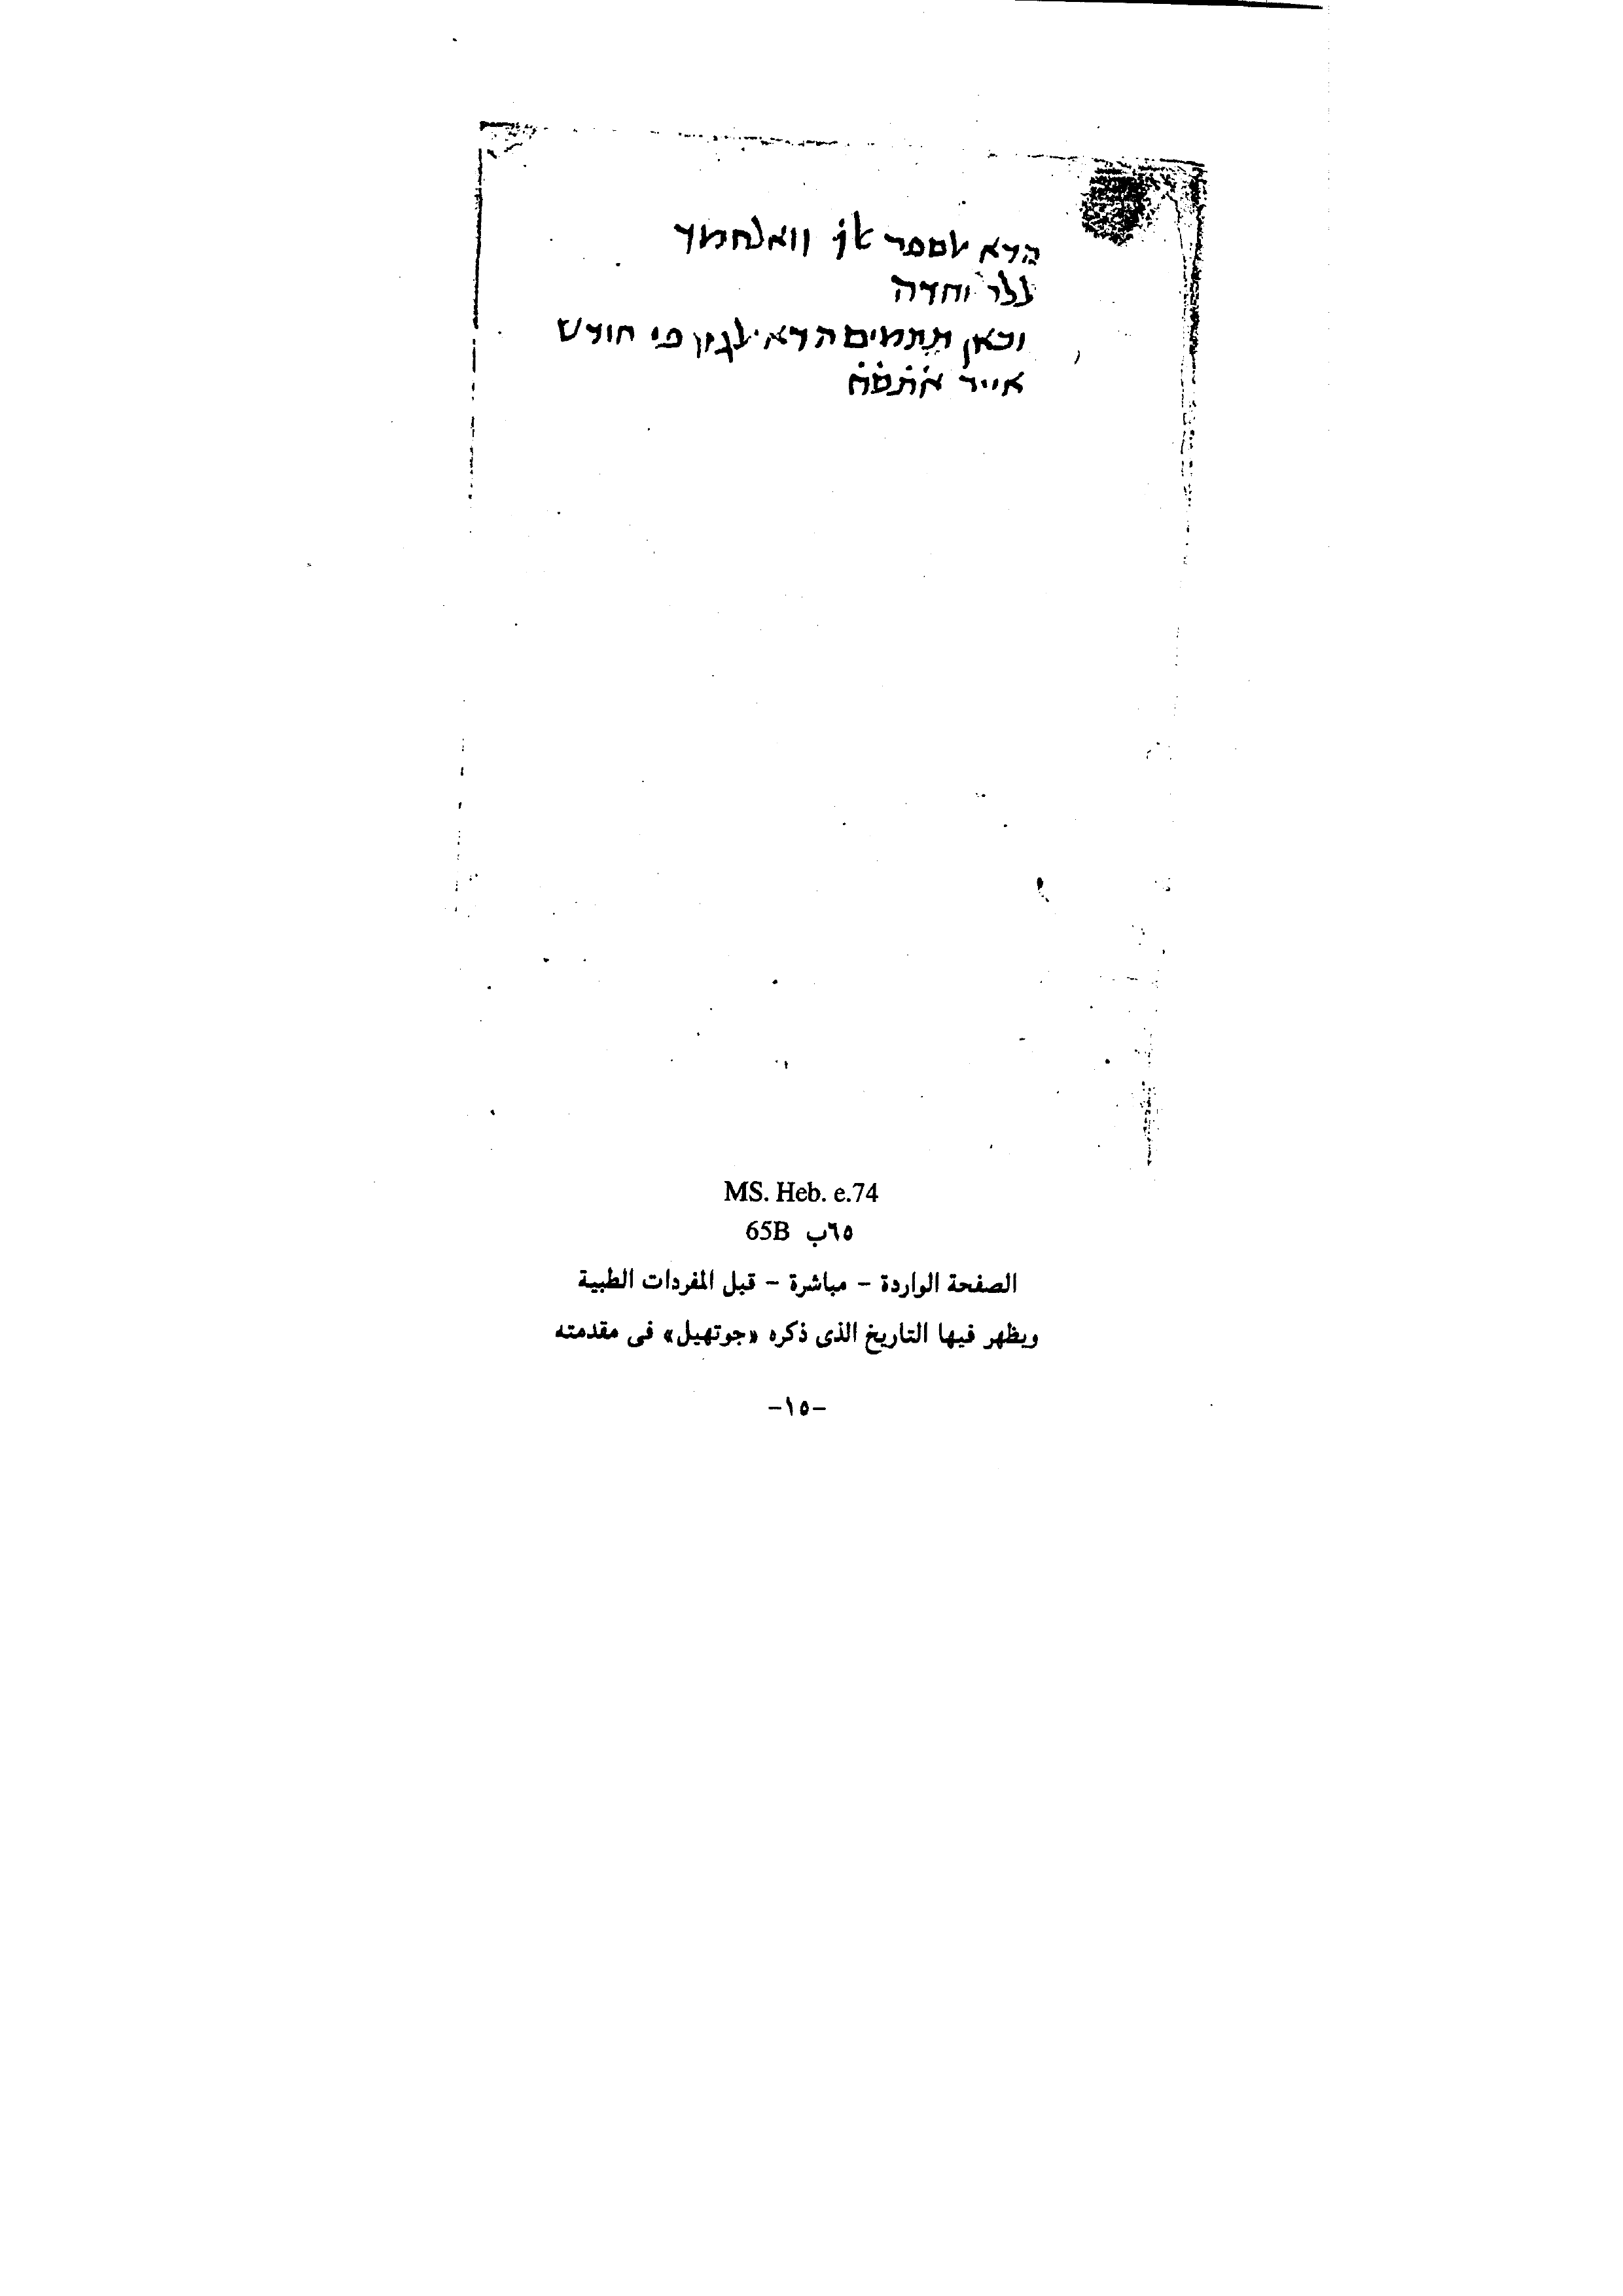 הדא
ללה וחדה
וכאן תתמים הדא פי חודש
אייר אתסח
MS. Heb. e.74
65B ٦٥ب
الصفحة الواردة - مباشرة - قبل المفردات الطبية
ويظهر فيها التاريخ الذى ذكره «جوتهيل» فى مقدمته
-١٥-